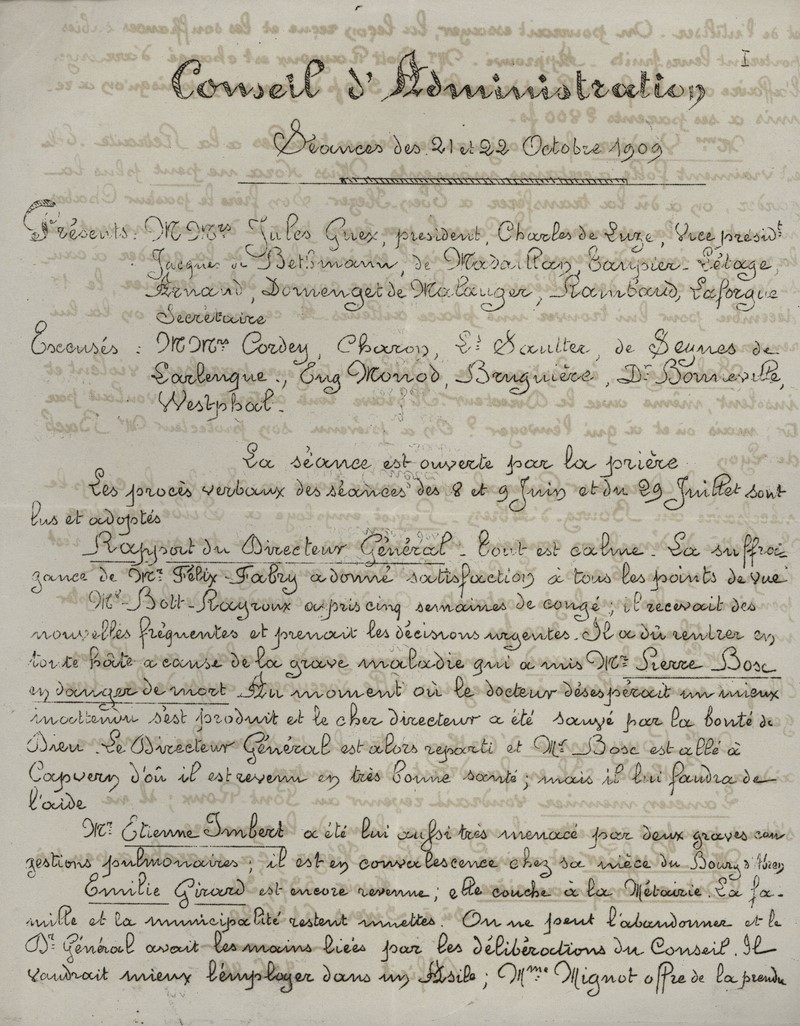 I
Conseil d'Administration
Séances des 21 et 22 Octobre 1909
Présents : MMrs Jules Guex, président, Charles de Luze, Vice présidt
Jacques de Bethmann, de Madaillan, Taupier-Létage,
Arnaud, Domenget de Malauger, Rambaud, Laforgue
Secrétaire
Excusés : MMrs Cordey, Charon, Lt Saulter, de Seynes de
Larlenque., Eug Monod, Bruguière, Dr Bonneville,
Westphal.
La séance est ouverte par la prière
Les procès verbaux des séances des 8 et 9 Juin et du 29 Juillet sont
lus et adoptés
Rapport du Directeur Général. Tout est calme. La suffra
gance de Mr Félix-Fabry a donné satisfaction à tous les points de vue
Mr Bott-Rayroux a pris cinq semaines de congé ; il recevait des
nouvelles fréquentes et prenait les décisions urgentes. Il a dû rentrer en
toute hâte a cause de la grave maladie qui a mis Mr Pierre Bosc
en danger de mort. Au moment où le docteur désespérait un mieux
inattendu s'est produit et le cher directeur a été sauvé par la bonté de
Dieu. Le Directeur Général est alors reparti et Mr Bosc est allé à
Capvern d'où il est revenu en très bonne santé ; mais il lui faudra de
l'aide
Mr Etienne Imbert a été lui aussi très menacé par deux graves con
gestions pulmonaires ; il est en convalescence chez sa nièce du Bourg d'
Emilie Girard est encore revenue ; elle couche à la Métairie. La fa-
mille et la municipalité restent muettes. On ne peut l'abandonner et le
Dr Général avait les mains liées par les délibérations du Conseil. Il
vaudrait mieux l'employer dans un Asile ; Mme Mignot offre de la prendre